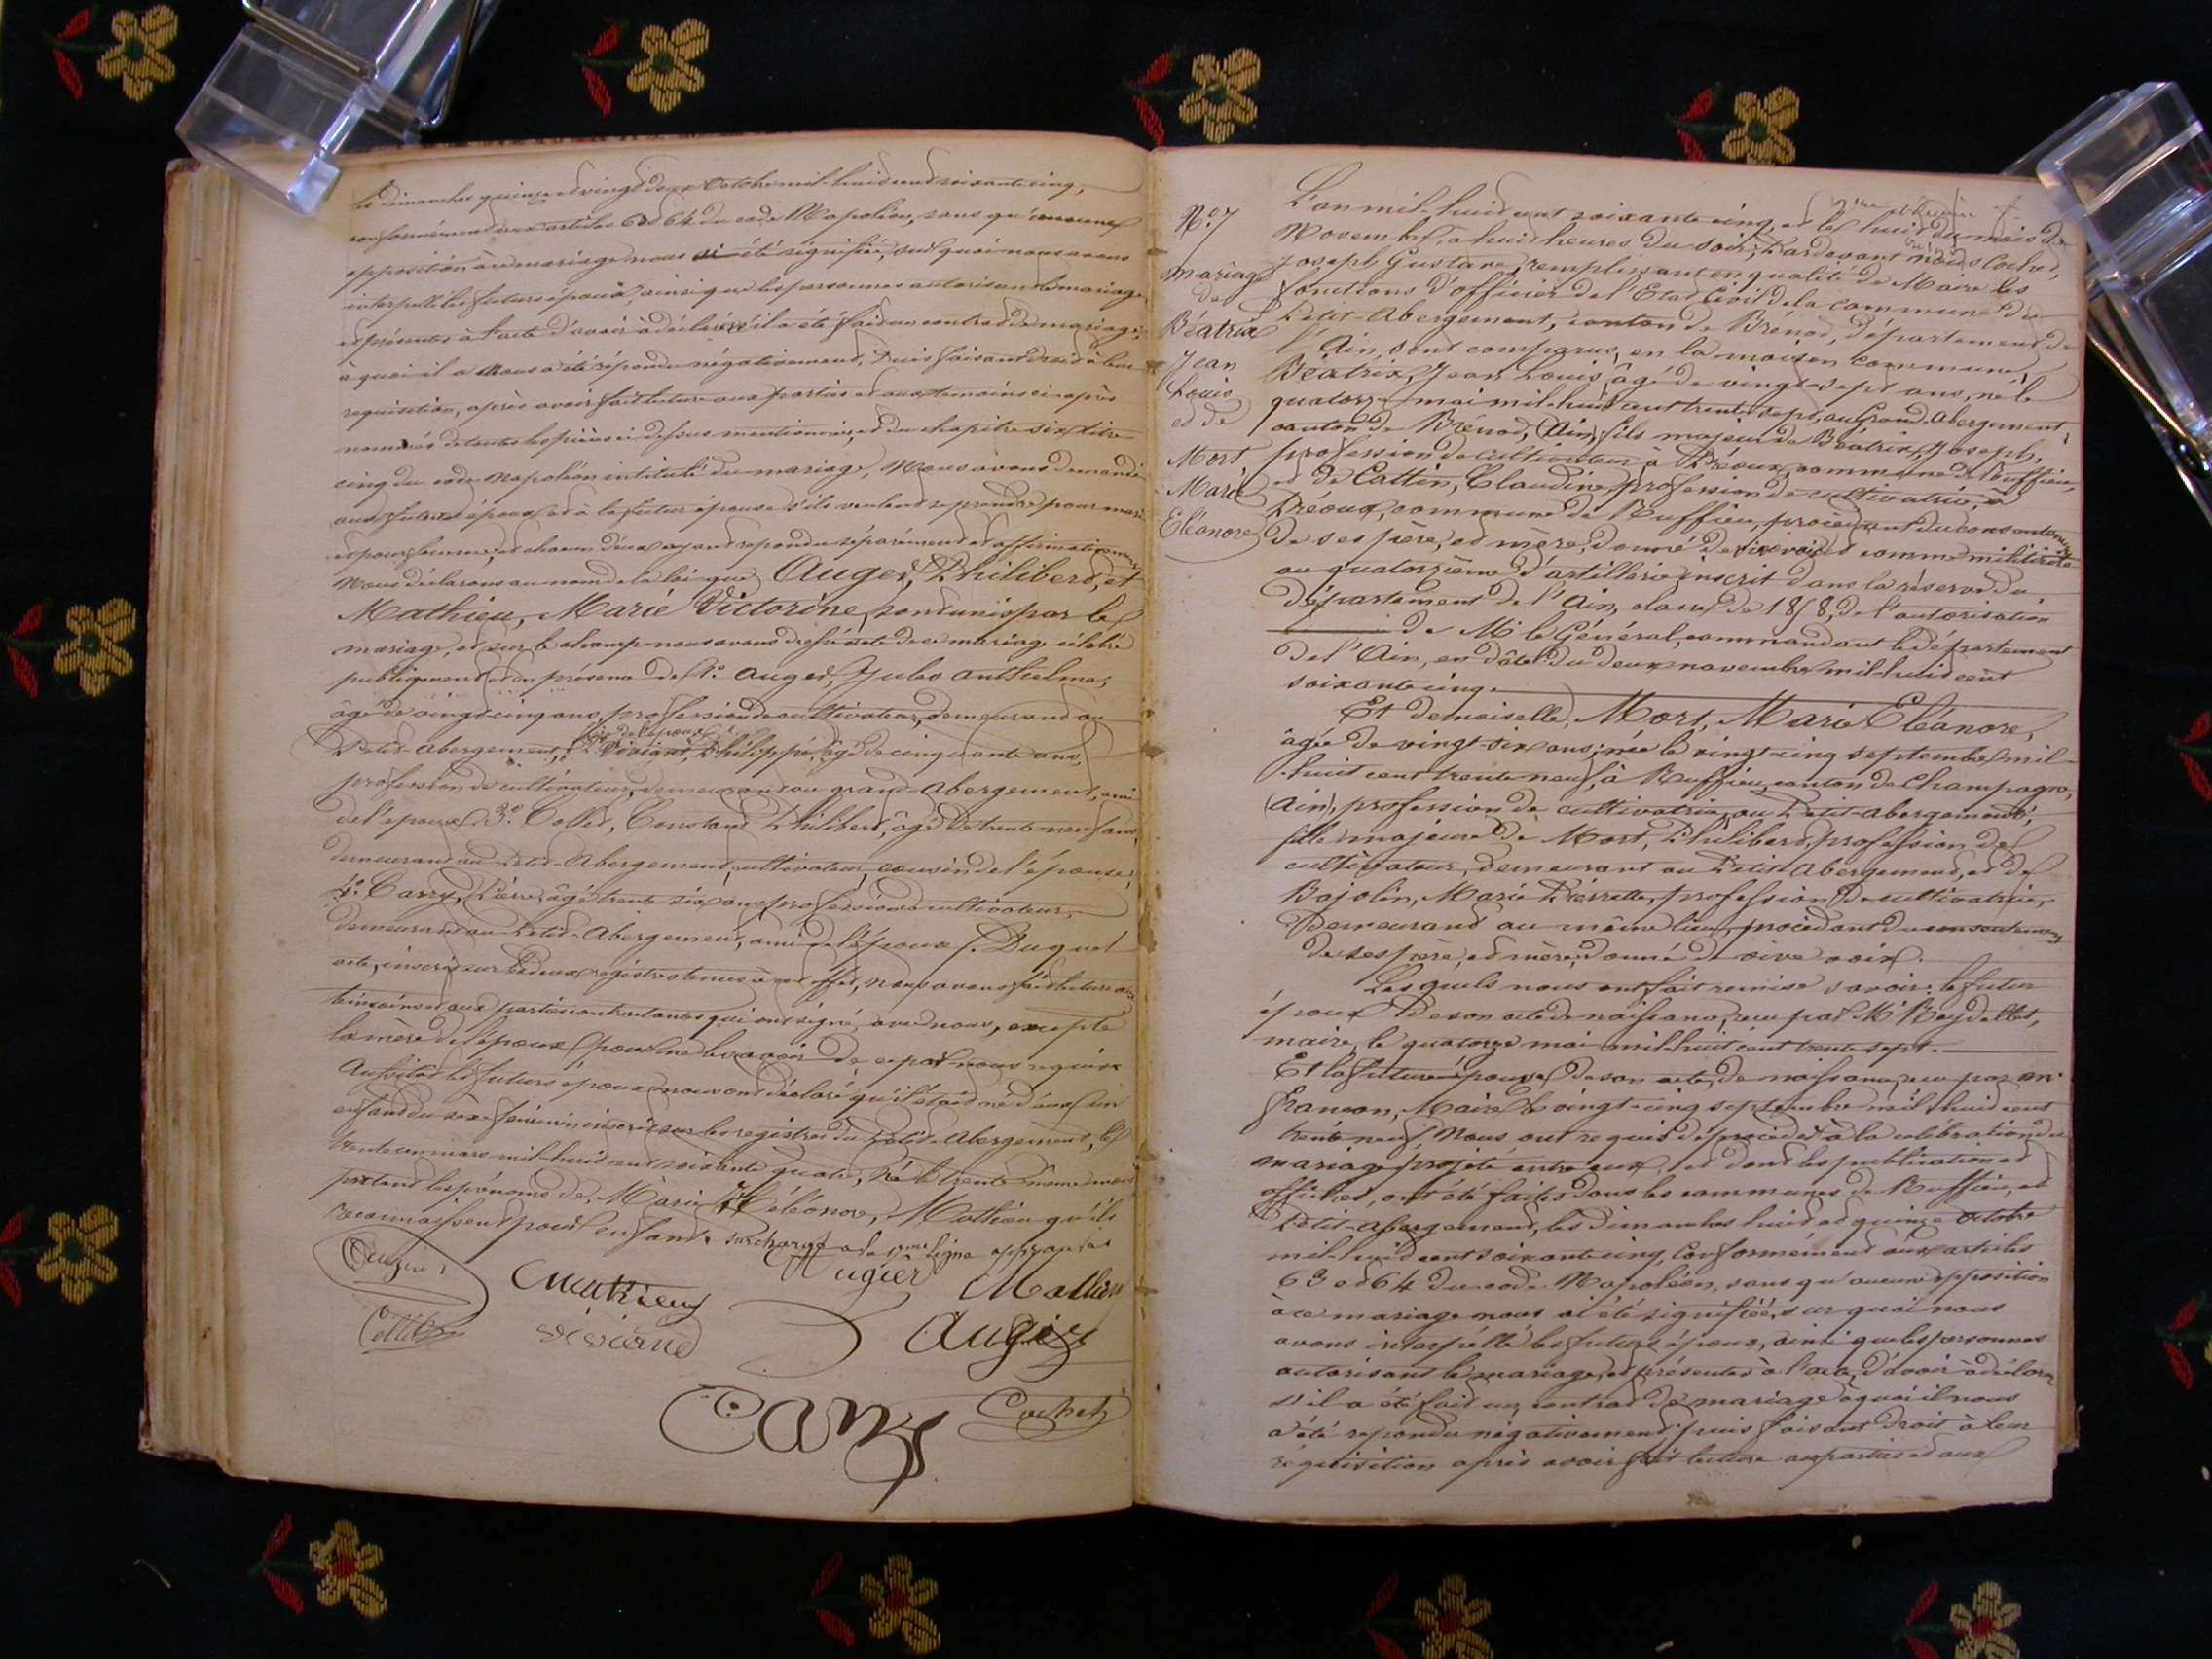 les dimanches quinze et vingt deux Octobre mil-huit cent soixante cinq,
conformément aux articles 63 et 64 du code Napoléon, sans qu'aucune
opposition à ce mariage nous ai été signifiée, sur quoi nous avons
interpellé les futurs époux, ainsi que les personnes autorisant le mariage
et présentes à l'acte d'avoir à déclarer s'il a été fait un contrat de mariage,
à quoi il a nous a été répondu négativement, Puis faisant droit à leur
requisition, après avoir fait lecture aux parties et aux témoins ci-après
nommés de toutes les pièces ci dessus mentionnées, et du chapitre six, titre
cinq du code Napoléon intitulé du mariage, Nous avons demandé
aux futurs époux et à la futur épouse s'ils veulent se prendre pour mari
et pour femme, et chacun d'eux ayant répondu séparément et affirmativement
Nous déclarons au nom de la loi que Auger, Philibert, et
Mathieu, Marie Victorine, sont unis par le
mariage, et sur le champ nous avons dressé acte de ce mariage célébré
publiquement et en présence de 1.° Auger, Jules Anthelme,
âgé de vingt-cinq ans, profession de cultivateur, demeurant au
frère de l'époux
Petit-Abergement, 2° Philippe, âgé de cinquante ans,
profession de cultivateur, demeurant au grand-Abergement, ami
de l'époux. 3.° Collet, Constant Philibert, âgé de trente-neuf ans,
demeurant au Petit-Abergement, cultivateur, cousin de l'épouse,
4.° Carry, Pierre, âgé trente six ans profession de cultivateur,
demeurant au Petit-Abergement, ami de l'époux. Duquel
acte, inscrit sur les deux registres tenus à cet effet, nous avons fait lecture aux
témoins et aux parties contractantes qui ont signé, avec nous, excepté
la mère de l'époux pour ne le savoir de ce par nous requise
Aussitôt les futurs époux nous ont déclaré qu'il était né d'eux un
enfant du sexe féminin inscrit sur les registres du Petit-Abergement, le
trente un mars mil-huit cent soixante quatre, Né le trente même mois
portant les prénoms de Marie Eléonore, Mathieu qu'ils
reconnaissent pour enfant. surcharge a la ligne approuvée
Mathieu Augier Mathieu
Collet Augier
Carry Cochet
N.° 7
Mariage
de
Béatrix
Jean
Louis
et de
Mort
Marie
Eléonore
L'an mil-huit cent soixante cinq, et le huit du mois de
Novembre, à huit heures du soir, Pardevant nous Cochet,
Joseph Gustave, remplissant en qualité de Maire les
fonctions d'officier de l'Etat Civil de la commune du
Petit-Abergement, canton de Brénod, département de
l'Ain, sont comparus, en la maison commune,
Béatrix, Jean Louis, âgé de vingt-sept ans, né le
quatorze mai mil-huit cent trente sept, au Grand-Abergement,
canton de Brénod, (Ain), fils majeur de Béatrix, Joseph,
profession de cultivateur à Préoux, commune de Ruffieu,
et de Cattin, Claudine, profession de cultivatrice, à
Préoux, commune de Ruffieu, procédant du consentement
de ses père, et mère, donné de vive voix et comme militaire
au quatorzième d'artillerie inscrit dans la réserve du
département de l'Ain, classe de 1858, de l'autorisation
de M. le Général, commandant le département
de l'Ain, en date du deux novembre mil-huit cent
soixante cinq.
Et demoiselle, Mort, Marie Eléonore,
âgée de vingt-six ans, née le vingt-cinq septembre mil-
huit cent trente neuf, à Ruffieu, canton de Champagne,
(Ain), profession de cultivatrice, au Petit-Abergement,
fille majeure de Mort, Philibert, profession de
cultivateur, demeurant au Petit Abergement, et de
Bajolin, Marie Pierrette, profession de cultivatrice,
Demeurant au même lieu, procédant du consentement
de ses père, et mère, donné de vive voix.
Lesquels nous ont fait remise savoir : le futur
époux De son acte de naissance, reçu par M. Reydellet,
maire, le quatorze mai mil huit cent trente sept.
Et la future épouse de son acte, de naissance, reçu par M.
Françon, Maire, le vingt-cinq septembre mil huit cent
trente neuf, Nous ont requis de procéder à la celébration du
mariage projeté entre eux, et dont les publications et
affiches, ont été faites dans les communes de Ruffieu, et
Petit-Abergement, les Dimanches huit et quinze Octobre
mil-huit cent soixante cinq, Conformément aux articles
63 et 64 du code Napoléon, sans qu'aucune opposition
à ce mariage nous ai été signifiée, sur quoi nous
avons interpellé les futurs époux, ainsi que les personnes
autorisant le mariage, et présentes à l'acte, d'avoir à déclarer
s'il a été fait un contrat de mariage à quoi il nous
a été repondu négativement puis faisant droit à leur
réquisition après avoir fait lecture aux parties et aux